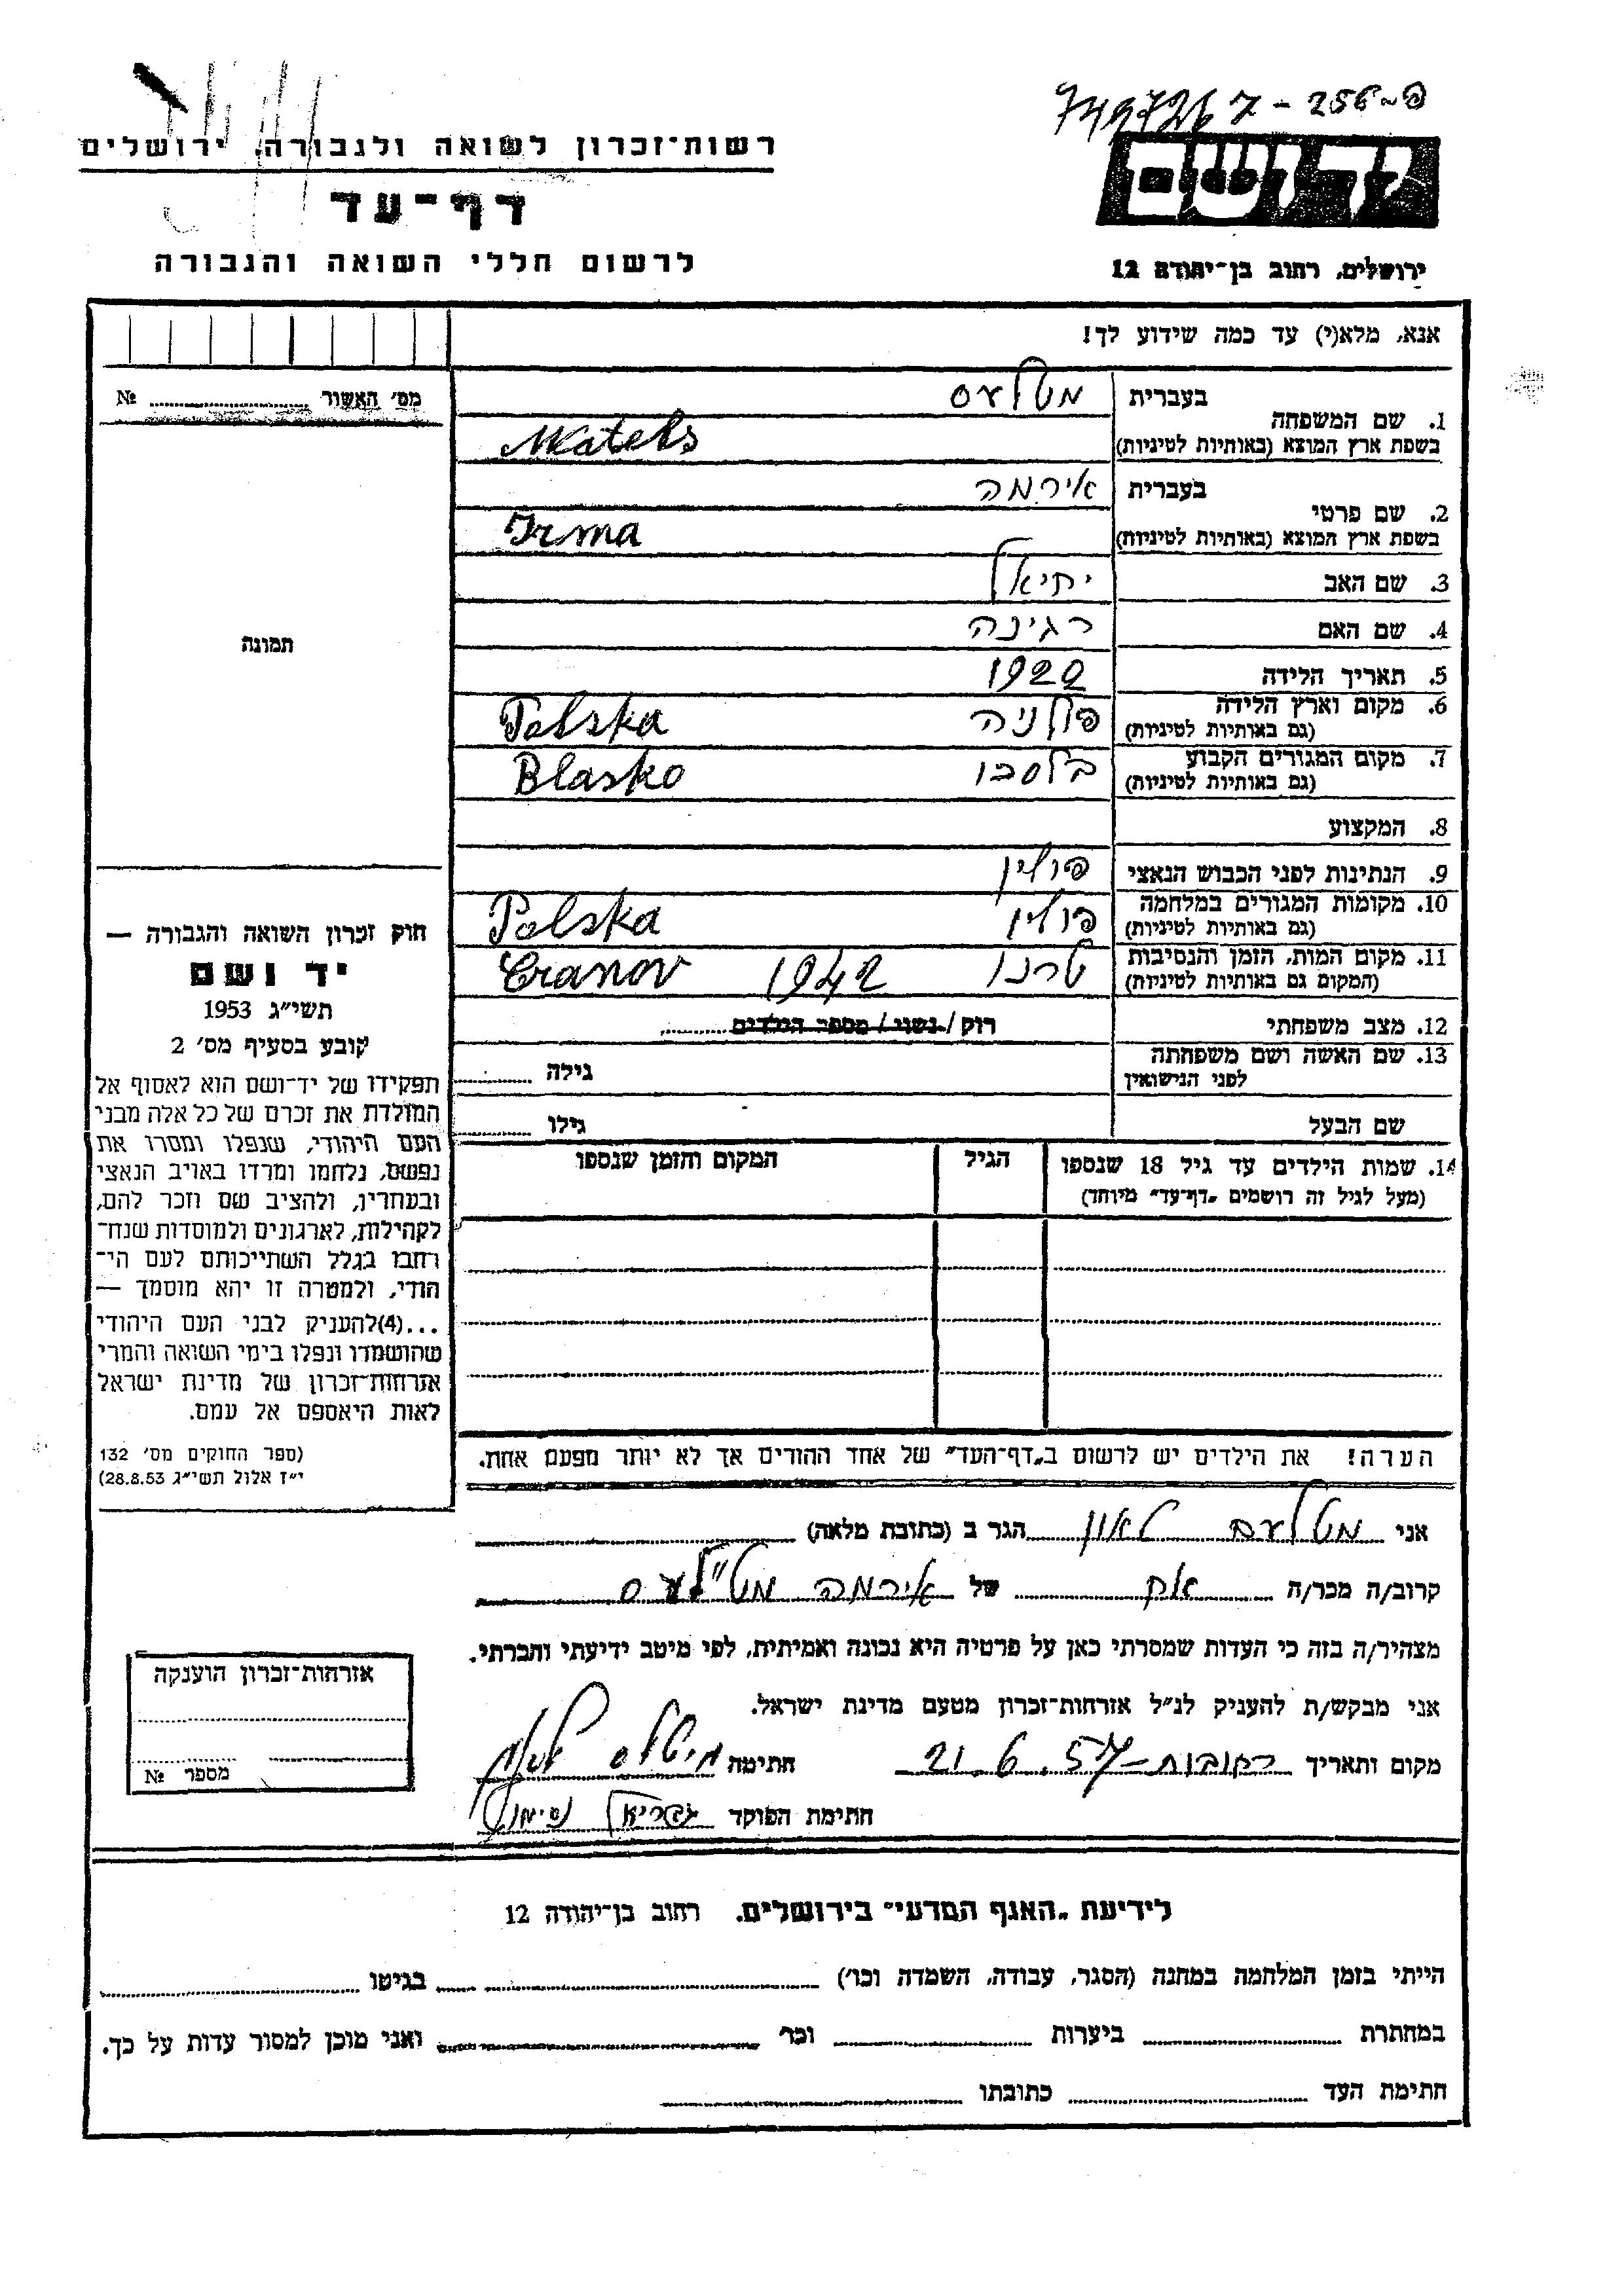 רשות־זכרון לשואה ולגבורה, ירושלים
דף־עד
לרשום חללי השואה והגבורה
יד ושם
ירושלים, רחוב בן־יהודה 12
אנא, מלא(י) עד כמה שידוע לך!
מס׳ האשור № 
1. שם המשפחה בעברית מטלעס
בשפת ארץ המוצא (באותיות לטיניות)
2. שם פרטי בעברית אירמה
בשפת ארץ המוצא (באותיות לטיניות) Irma
3. שם האב יחיאל
4. שם האם רגינה
5. תאריך הלידה 1922
6. מקום וארץ הלידה (גם באותיות לטיניות) פולניה Polska
7. מקום המגורים הקבוע (גם באותיות לטיניות) Blasko
8. המקצוע
9. הנתינות לפני הכבוש הנאצי פולין
10. מקומות המגורים במלחמה (גם באותיות לטיניות) פולין Polska
11. מקום המות, הזמן והנסיבות (המקום גם באותיות לטיניות) טרנו 1942
12. מצב משפחתי רוק / נשוי / מספר הילדים
13. שם האשה ושם משפחתה לפני הנישואין גילה
שם הבעל גילו
14. שמות הילדים עד גיל 18 שנספו
(מעל לגיל זה רושמים „דף־עד״ מיוחד)
הגיל
המקום והזמן שנספו
תמונה
חוק זכרון השואה והגבורה —
יד ושם
תשי״ג 1953
קובע בסעיף מס׳ 2
תפקידו של יד־ושם הוא לאסוף אל
המולדת את זכרם של כל אלה מבני
העם היהודי, שנפלו ומסרו את
נפשם, נלחמו ומרדו באויב הנאצי
ובעוזריו, ולהציב שם וזכר להם,
לקהילות, לארגונים ולמוסדות שנח־
רבו בגלל השתייכותם לעם הי־
הודי, ולמטרה זו יהא מוסמך —
...(4)להעניק לבני העם היהודי
שהושמדו ונפלו בימי השואה והמרי
אזרחות־זכרון של מדינת ישראל
לאות היאספם אל עמם.
(ספר החוקים מס׳ 132
י״ז אלול תשי״ג 28.8.53)
הערה! את הילדים יש לרשום ב„דף־העד״ של אחד ההורים אך לא יותר מפעם אחת.
אני מטלעס לאון הגר ב (כתובת מלאה)
קרוב/ה מכר/ה אח של אירמה מטלעס
מצהיר/ה בזה כי העדות שמסרתי כאן על פרטיה היא נכונה ואמיתית, לפי מיטב ידיעתי והכרתי.
אני מבקש/ת להעניק לנ״ל אזרחות־זכרון מטעם מדינת ישראל.
מקום ותאריך רחובות – 21.6.57 חתימה
חתימת הפוקד גבריאל
אזרחות־זכרון הוענקה
מספר №
לידיעת „האגף המדעי״ בירושלים, רחוב בן־יהודה 12
הייתי בזמן המלחמה במחנה (הסגר, עבודה, השמדה וכו׳) בגיטו
במחתרת ביערות וכו׳ ואני מוכן למסור עדות על כך.
חתימת העד כתובתו